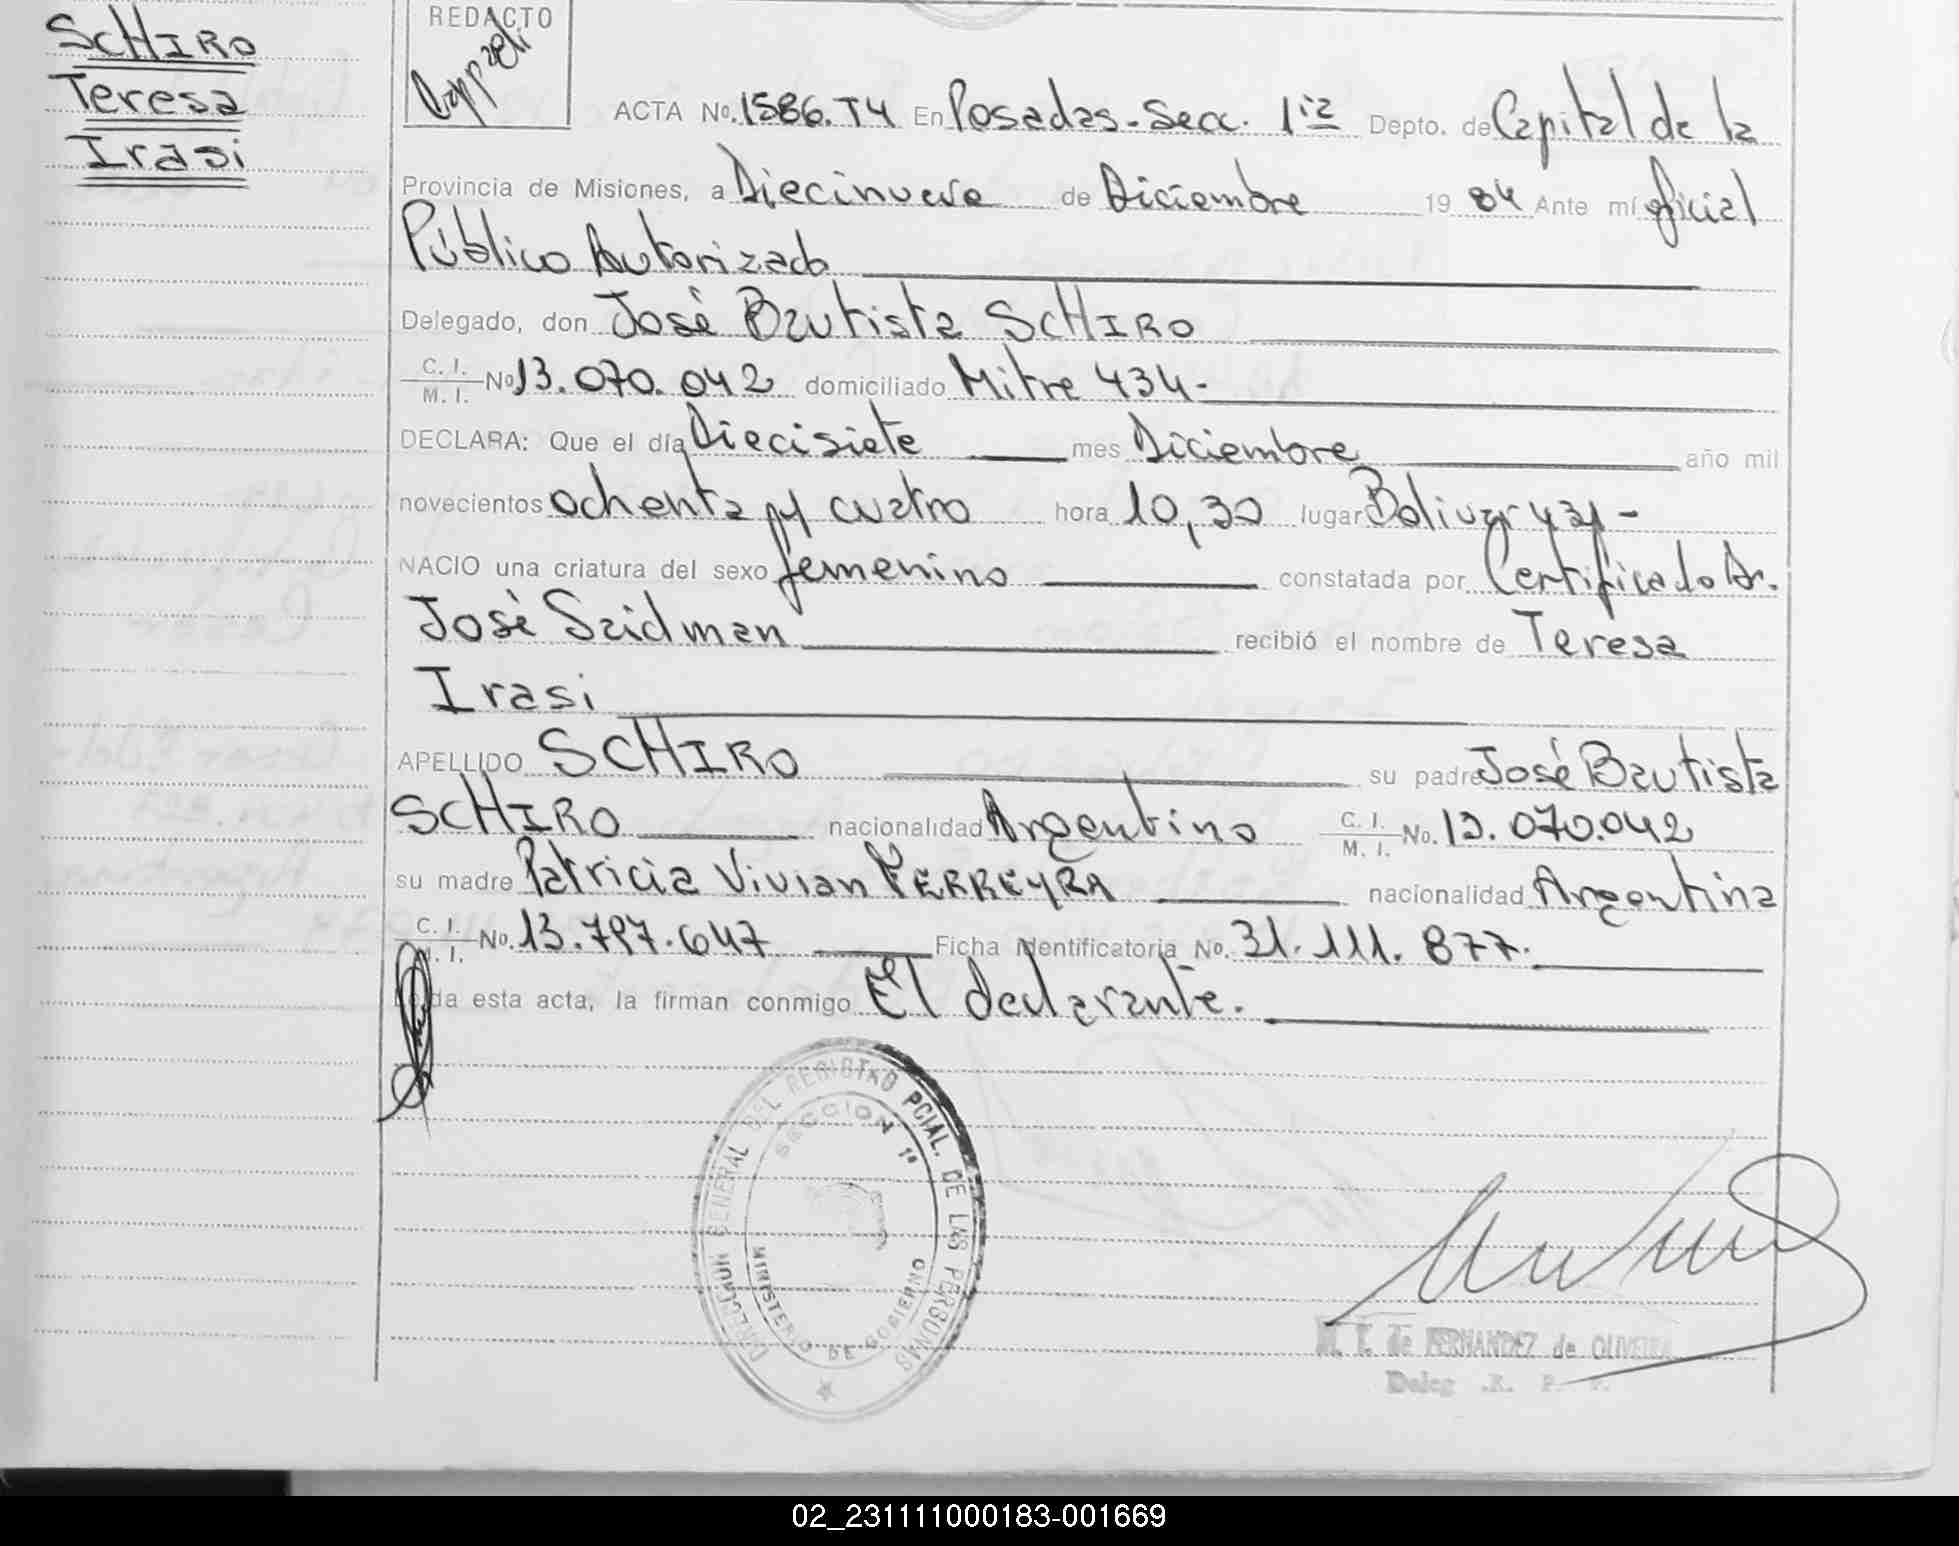 SCHIRO
Teresa
Irasi
REDACTO
ACTA No. 1586. T4 En Posadas - Secc. 1ra Depto. de Capital de la
Provincia de Misiones, a Diecinueve de Diciembre 19 84 Ante mí oficial
Público Autorizado
Delegado, don José Bautista SCHIRO
C. I.
M. I. No 13.070.042 domiciliado Mitre 434-
DECLARA: Que el día Diecisiete mes Diciembre año mil
novecientos ochenta y cuatro hora 10,30 lugar Bolivar
NACIO una criatura del sexo femenino constatada por Certificado Dr.
José Saidman recibió el nombre de Teresa
Irasi
APELLIDO SCHIRO su padre José Bautista
SCHIRO nacionalidad Argentino C. I.
M. I. No. 13.070.042
su madre Patricia Vivian FERREYRA nacionalidad Argentina
C. I.
M. I. No. 13.797.647 Ficha identificatoria No. 31.111.877.
Leída esta acta, la firman conmigo El declarante.
DIRECCION GENERAL DEL REGISTRO PCIAL. DE LAS PERSONAS
SECCION 1ª
MINISTERIO DE GOBIERNO
de FERNANDEZ de OLIVEIRA
Deleg
02_231111000183-001669